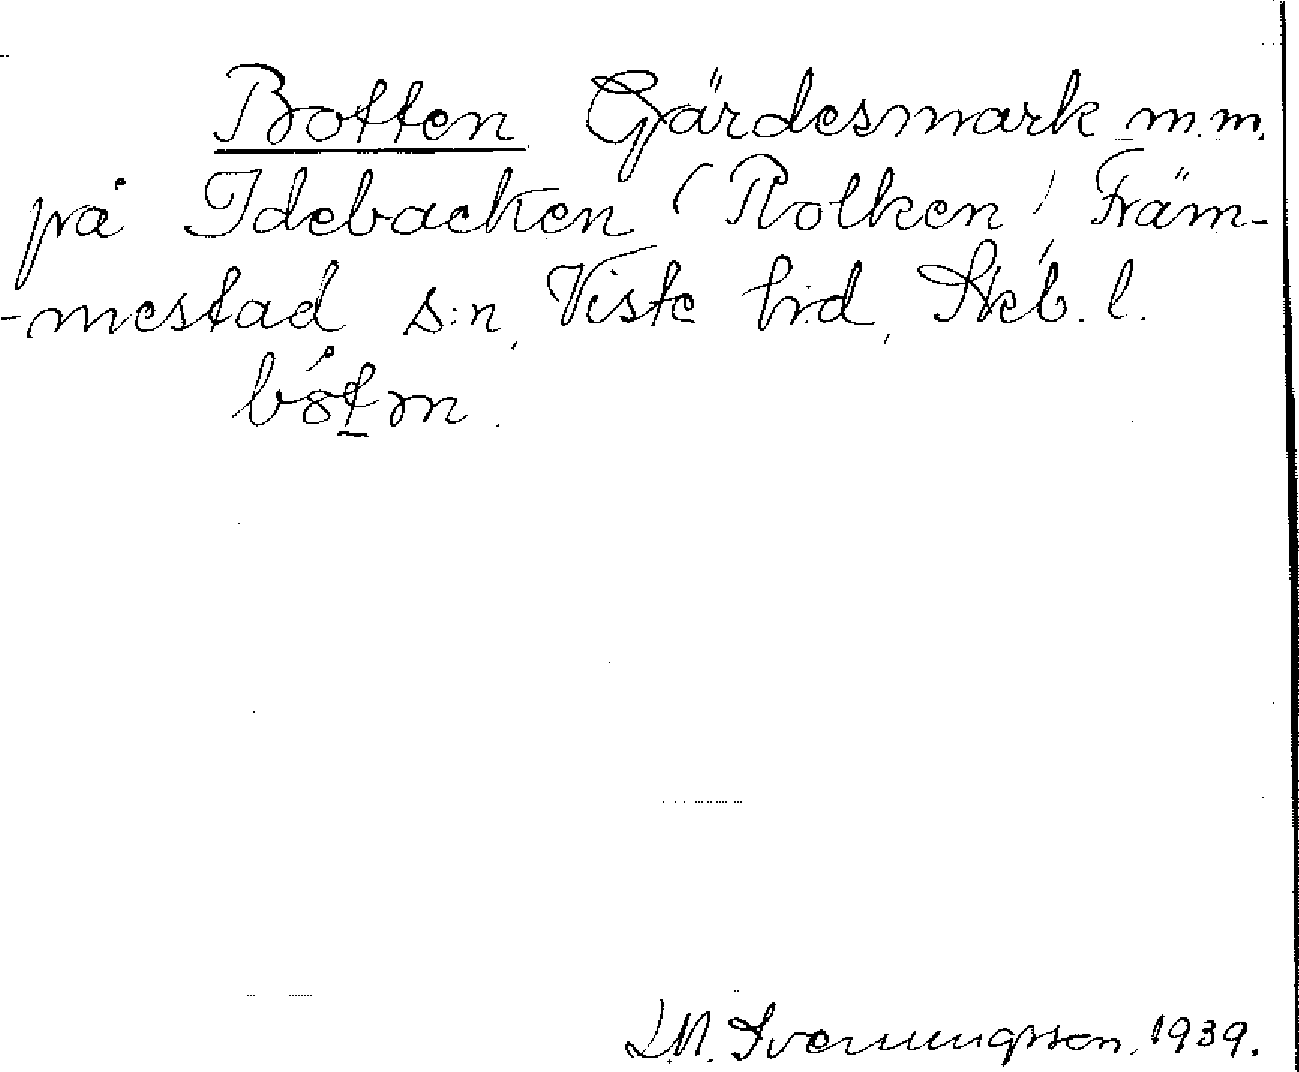 Botten Gärdesmark m.m.
på Idebacken (Rolken) Främ-
-mestad s:n, Viste hd, Skb. l.
bót̲n.
L.M. Svenungsson, 1939.